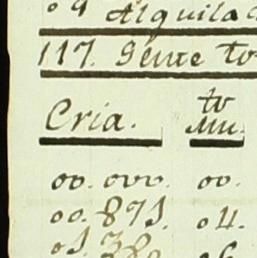 09 Alquila
117. Gente to
Cria. to Mu.
00. 000. 00.
00. 871. 04.
01. 38